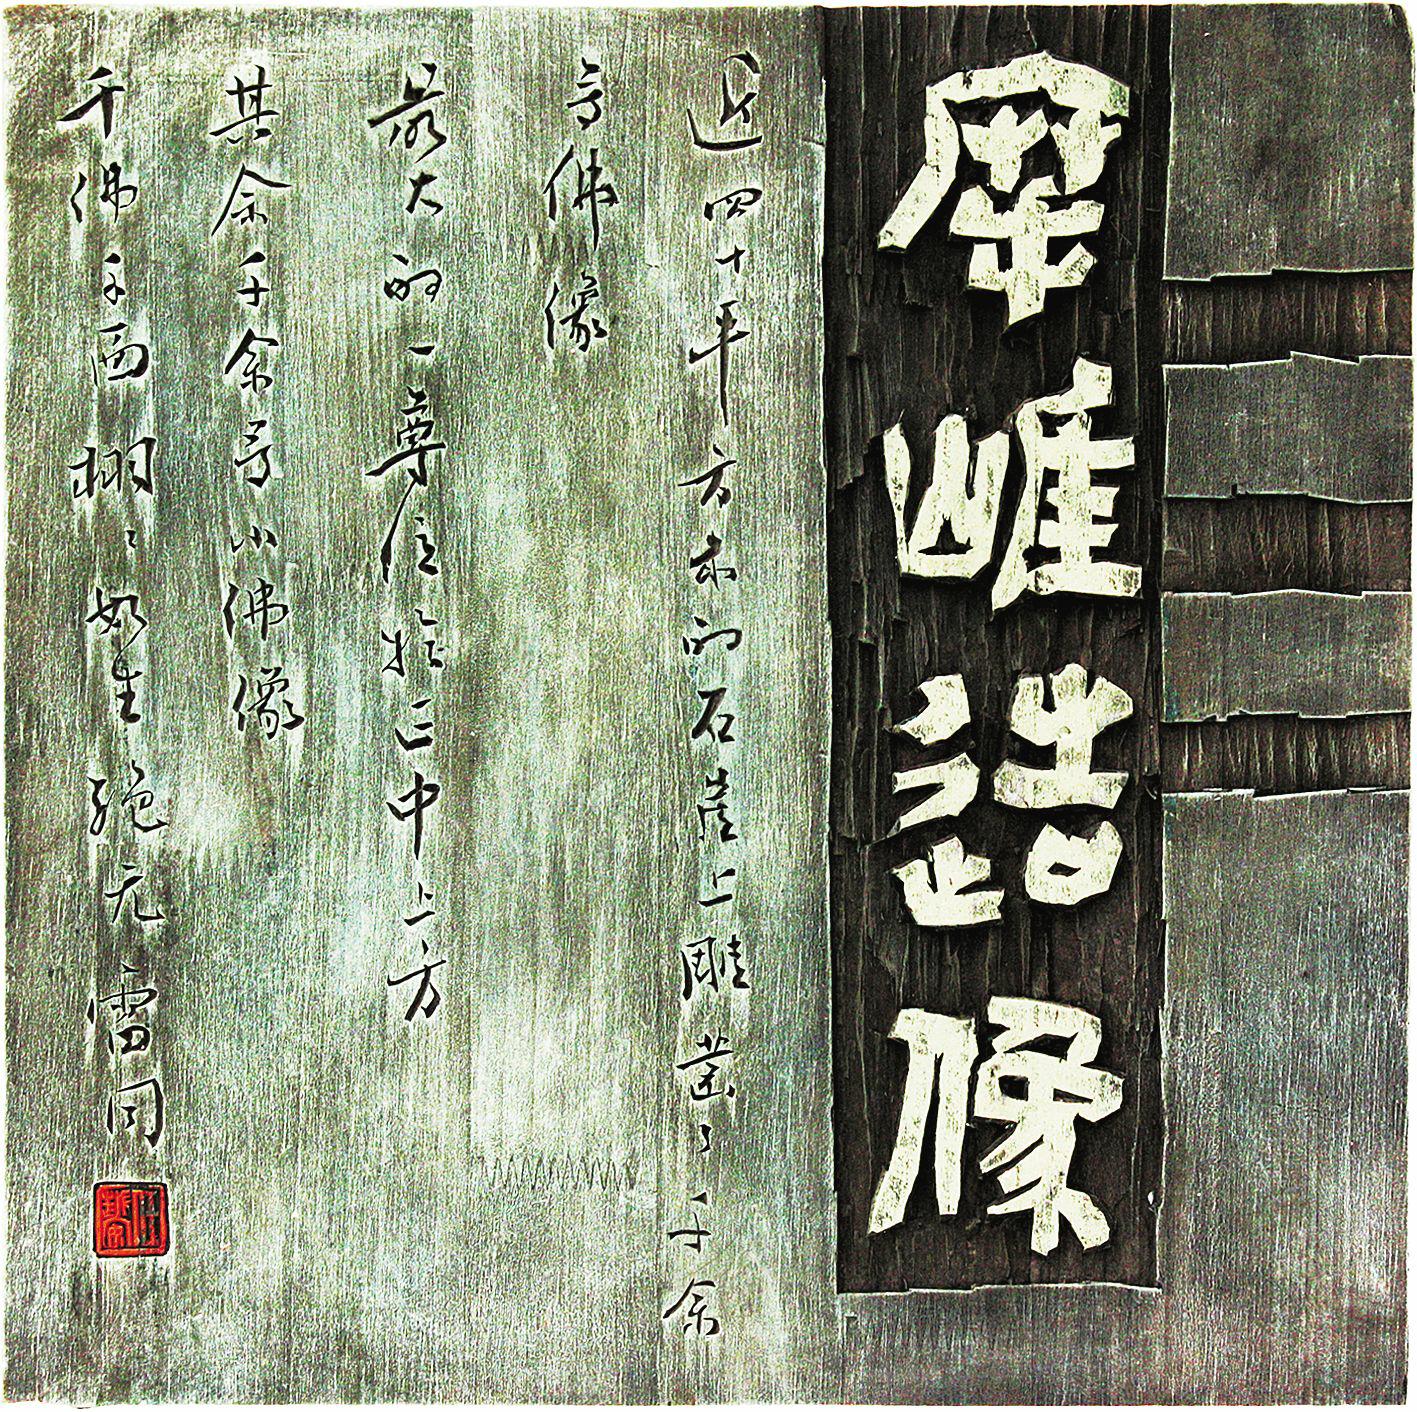 摩崖造像
近四十平方米的石崖上雕凿了千余
尊佛像
最大的一尊位於正中上方
其余千余尊小佛像
千佛千面栩々如生绝无雷同